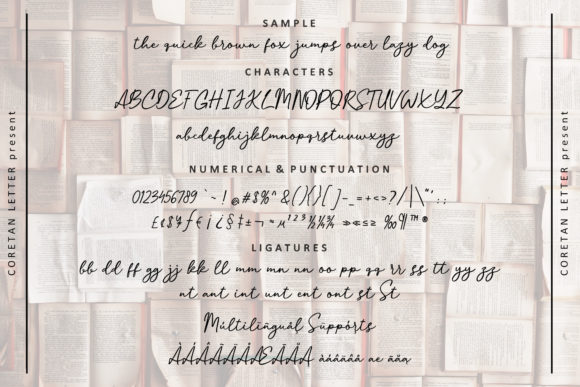 SAMPLE
the quick brown fox jumps over lazy dog
CHARACTERS
ABCDEFGHIJKLMNOPQRSTUVWXYZ
abcdefghijklmnopqrstuvwxyz
NUMERICAL & PUNCTUATION
0123456789 ` ~ ! @ # $ % ^ & ( ) { } [ ] - _ = + < > ? / | \ “ ’ ; :
LIGATURES
bb dd ff gg jj kk ll mm mn nn oo pp qq rr ss tt yy zz
nt ant int unt ent ont st St
Múltilingüál Süppórts
CORETAN LETTER present
CORETAN LETTER present